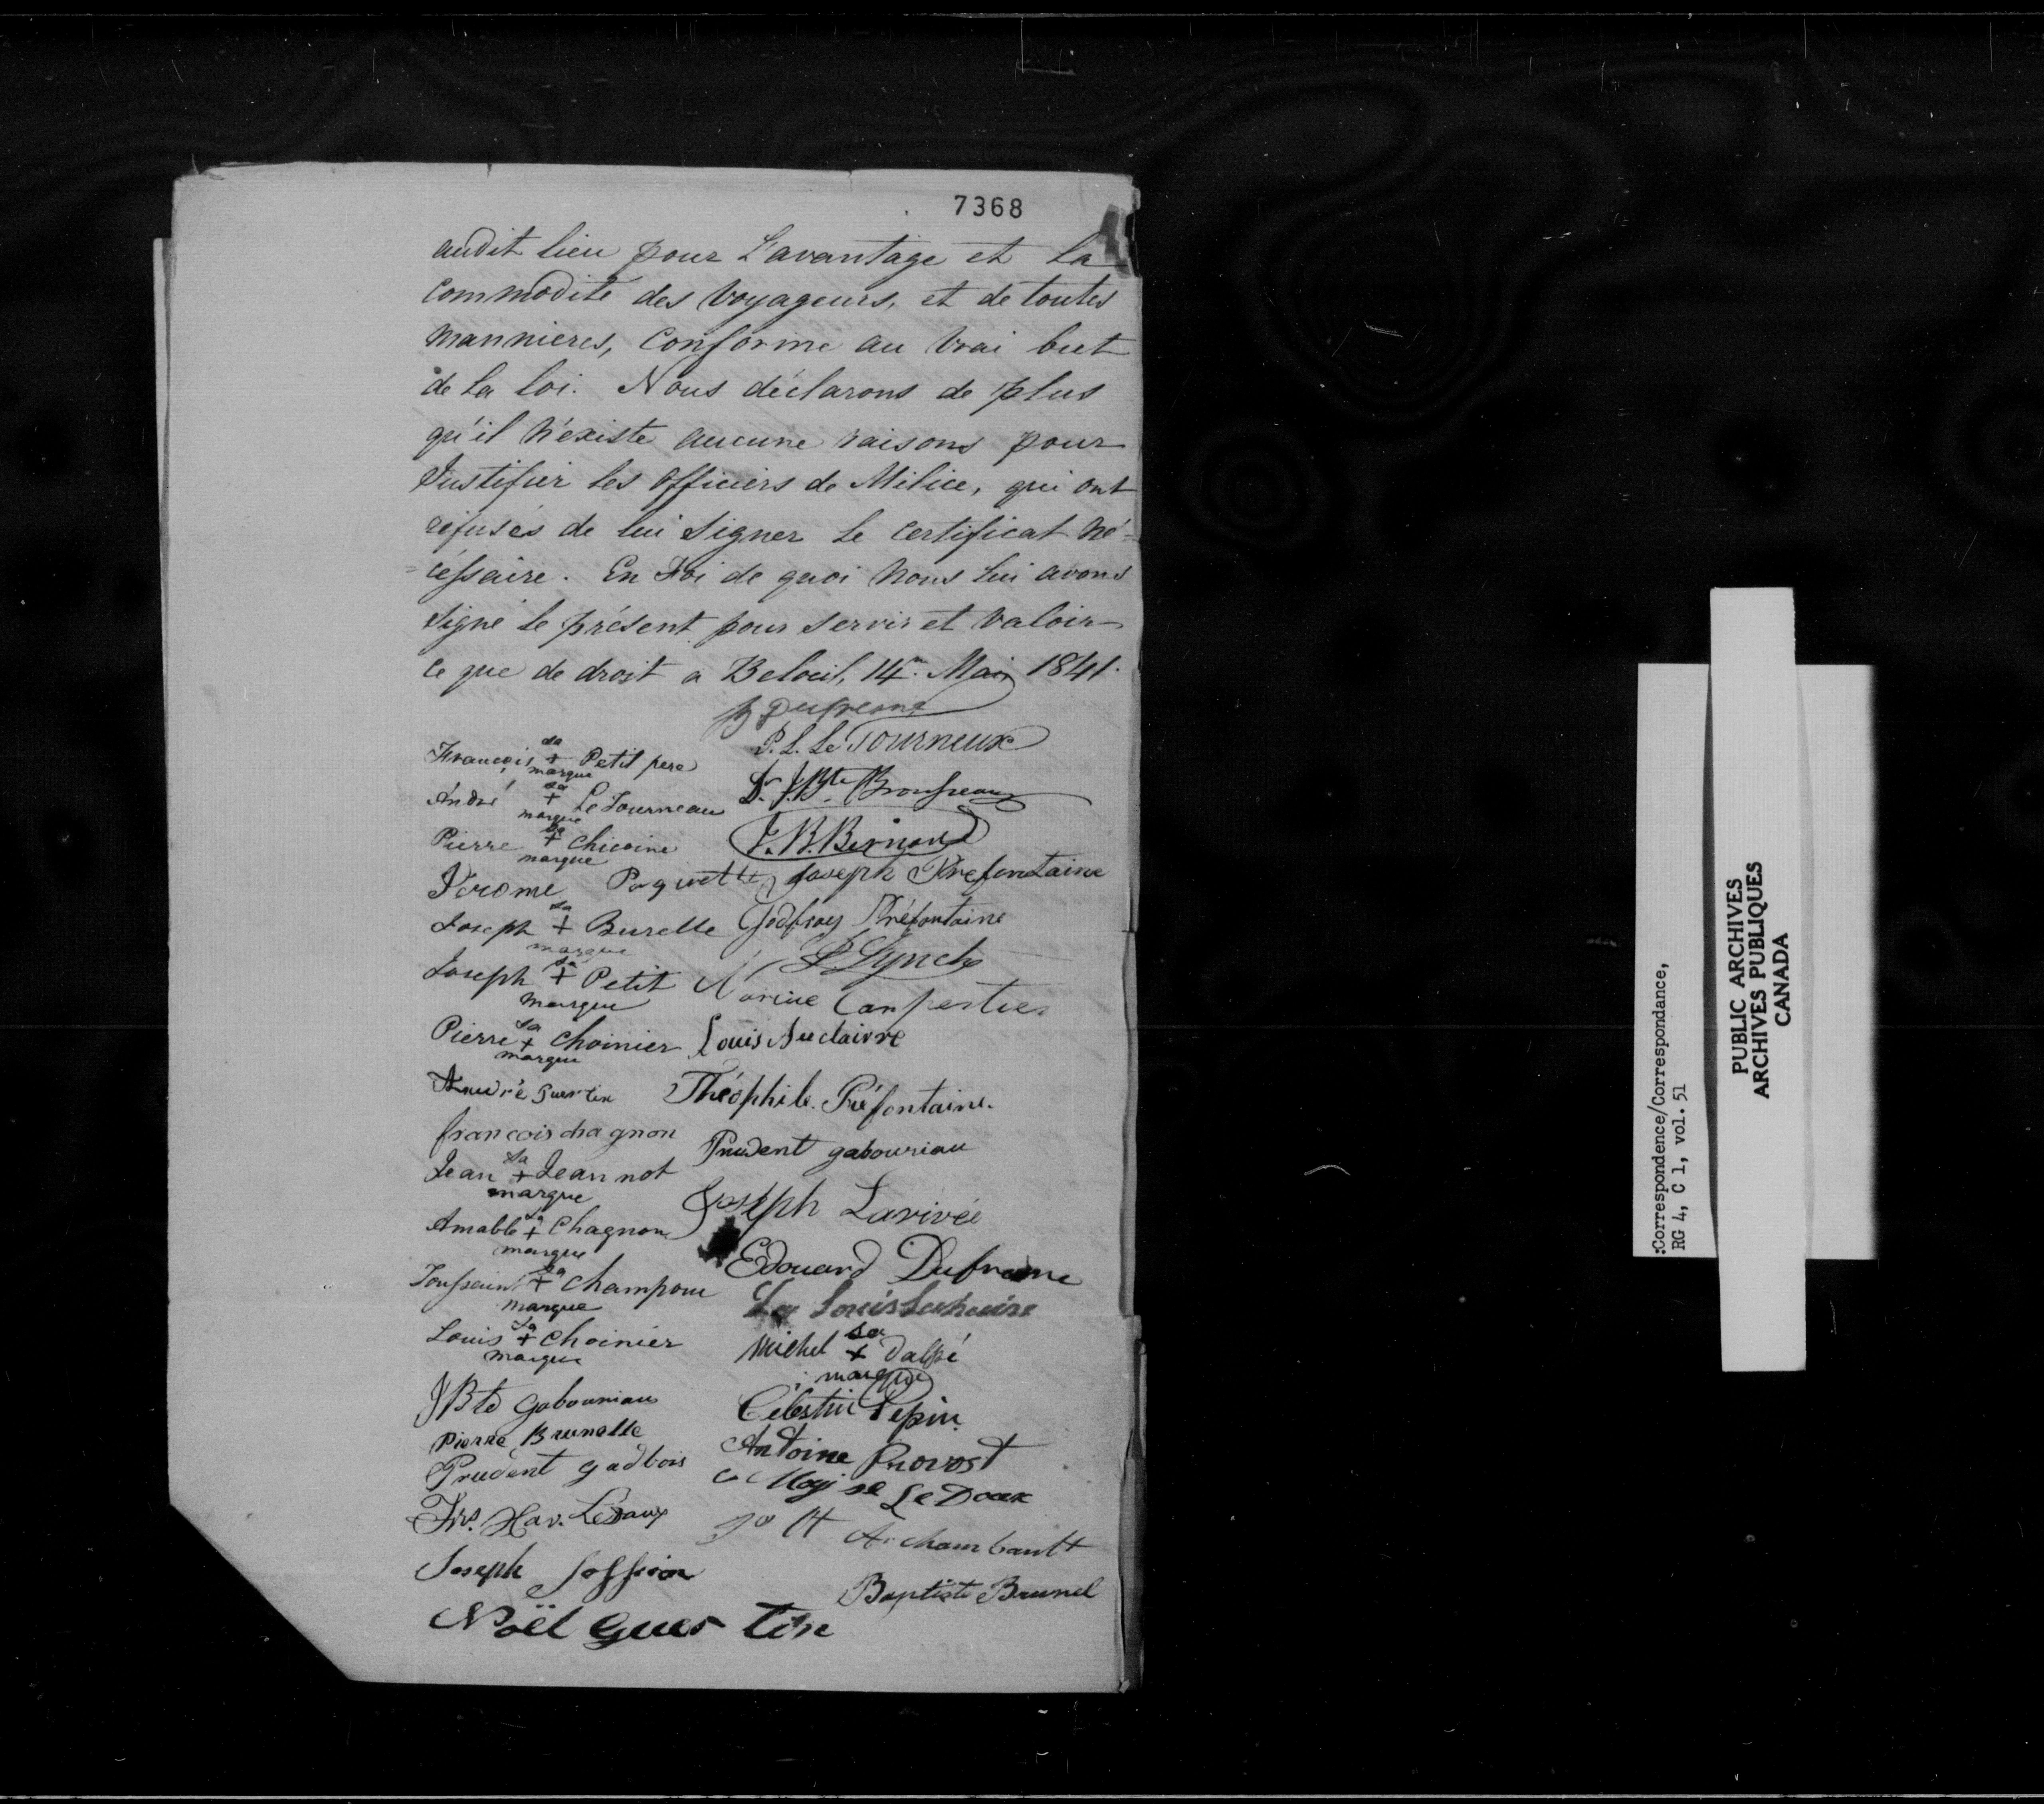 7368
audit lieu pour L'avantage et la
commodité des voyageurs, et de toutes
mannieres, conforme au vrai but
de la loi. Nous déclarons de plus
qu'il n'existe aucune raisons pour
Justifier les officiers de Milice, qui ont
refusés de lui signer le certificat né=
=céssaire. En Foi de quoi nous lui avons
signé le présent pour servir et valoir
ce que de droit a Belœil, 14 Mai 1841.
Dufresne
P. L. Le Tourneux
François sa + marque Petit pere
Dr. J. Bte Brousseau
André sa + marque Le Tourneau
J. B. Bernard
Pierre sa + marque Chicoine
Jérome Poquette
Joseph Prefontaine
Joseph sa + marque Burelle
Godfroy Préfontaine
Lynch
Joseph sa + marque Petit
Narcise Carpentier
Pierre sa + marque Choinier
Louis Auclaire
André Guertin
Théophile Préfontaine.
francois chagnon
Prudent gabouriau
Jean sa + marque Jeannot
Joseph Larivée
Amable sa + marque Chagnon
Edouard Dufresne
Toussaint sa + marque Champoux
Louis
Louis sa + marque Choinier
Michel sa + marque Dalpé
JBte Gabouriau
Célestin Pepin
Pierre Brunelle
Antoine Provost
Prudent gadbois
Moyse LeDoux
Frs. Xav. Ledoux
Archambault
Joseph
Baptiste Brunel
Noël Guertin
:Correspondence/Correspondance,
RG 4, C 1, vol. 51
PUBLIC ARCHIVES
ARCHIVES PUBLIQUES
CANADA